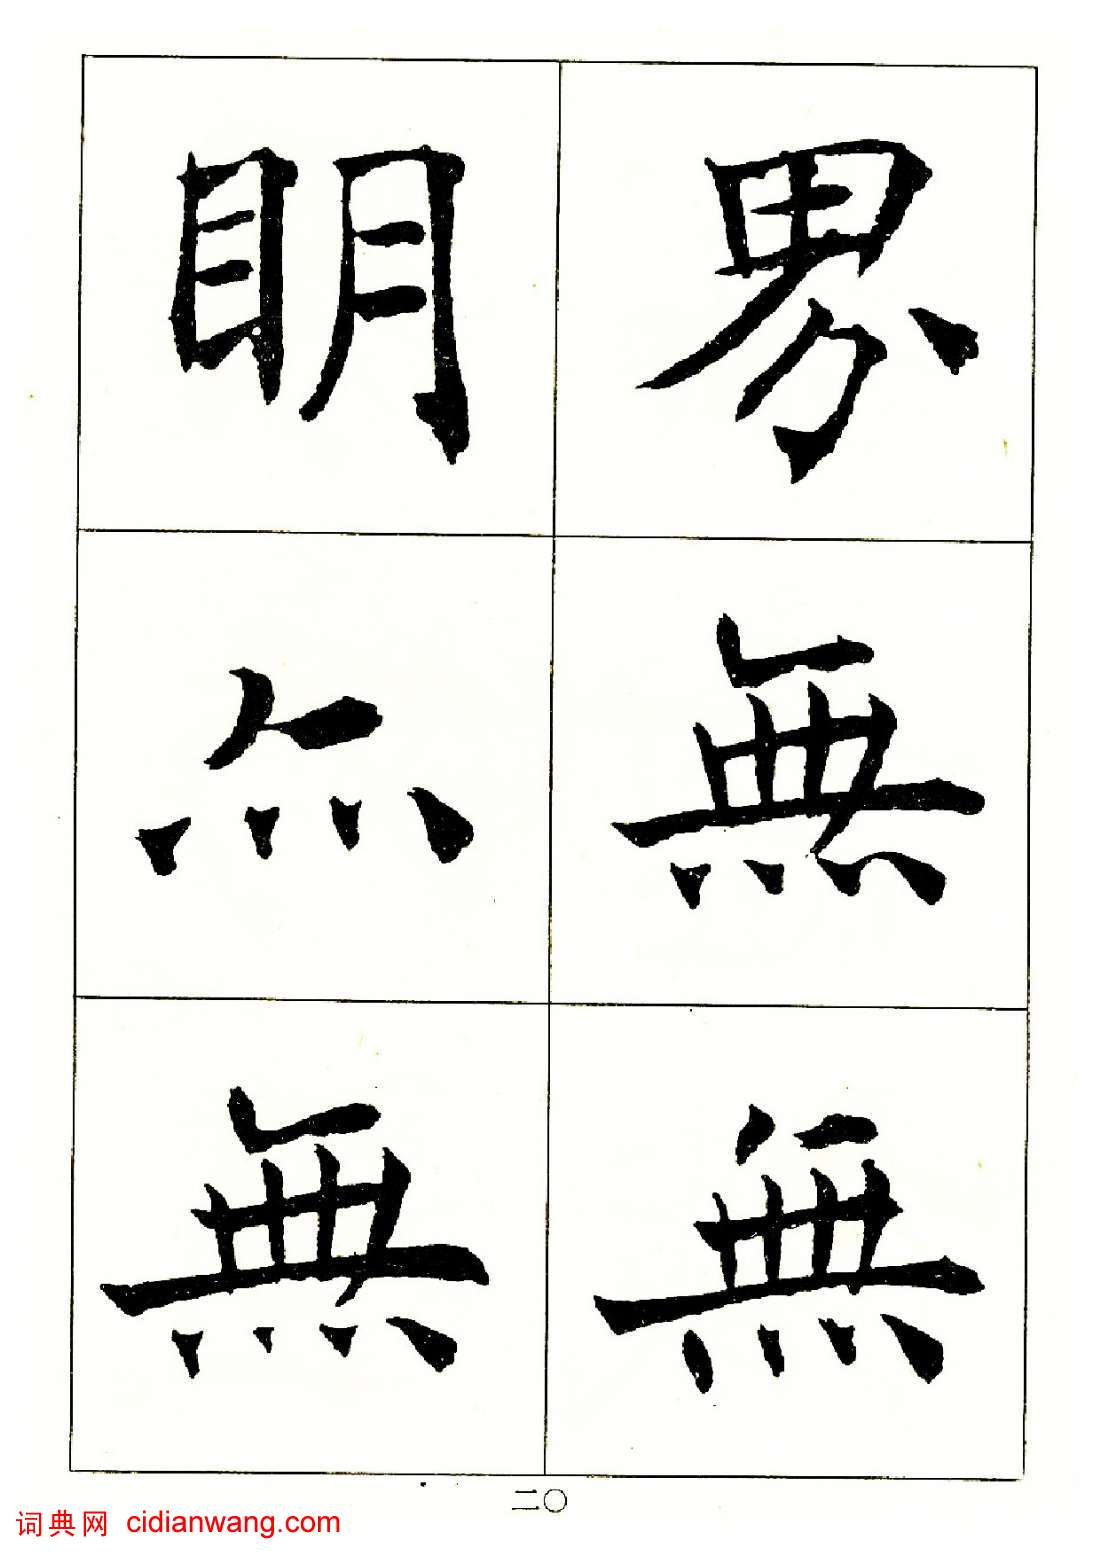 界
無
無
明
亦
無
二〇
词典网 cidianwang.com